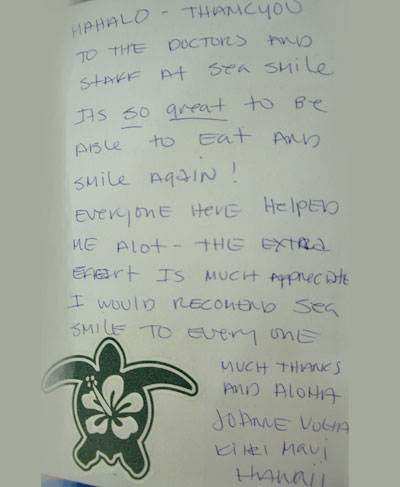 MAHALO - THANCYOU
TO THE DOCTORS AND
STAFF AT SEA SMILE
ITS SO great TO BE
ABLE TO EAT AND
SMILE AGAIN!
EVERYONE HERE HELPED
ME ALOT - THE EXTRA
EFFORT IS MUCH APPRECIATE
I WOULD RECOMEND SEA
SMILE TO EVERY ONE
MUCH THANKS
AND ALOHA
JOANNE
KIHEI MAUI
HAWAII